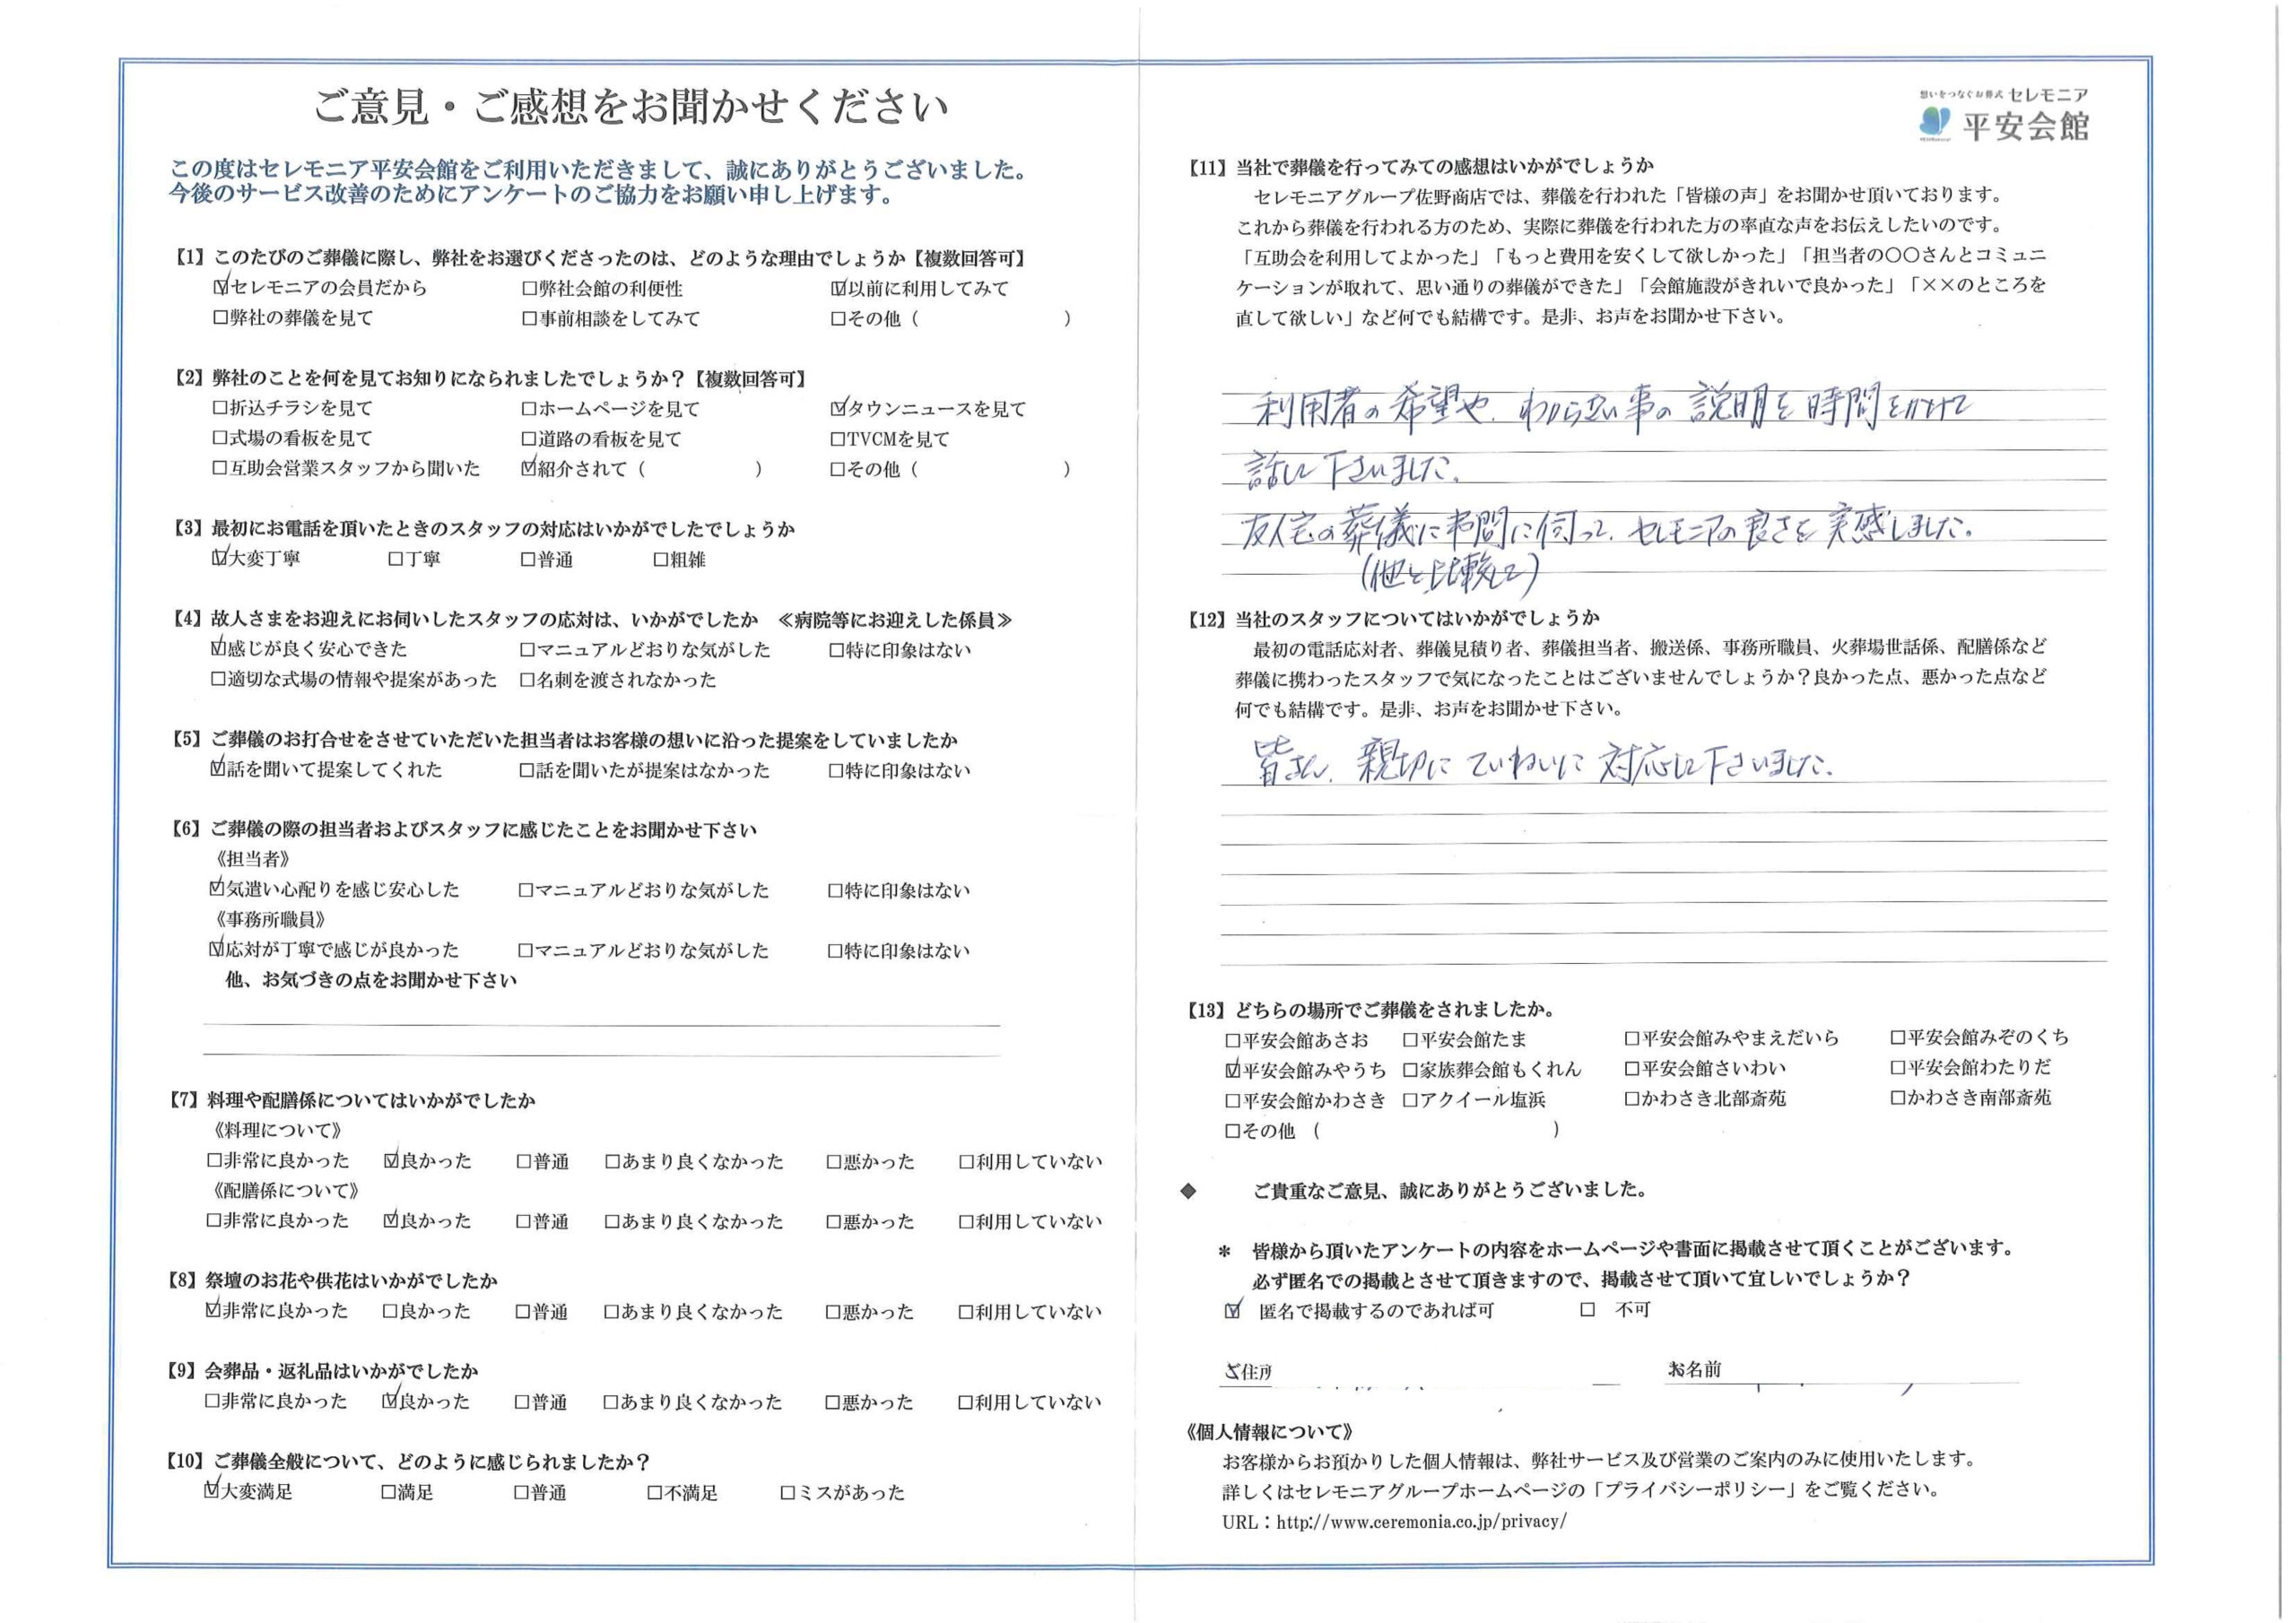 ご意見・ご感想をお聞かせください
この度はセレモニア平安会館をご利用いただきまして、誠にありがとうございました。
今後のサービス改善のためにアンケートのご協力をお願い申し上げます。
【1】このたびのご葬儀に際し、弊社をお選びくださったのは、どのような理由でしょうか【複数回答可】
☑セレモニアの会員だから □弊社会館の利便性 ☑以前に利用してみて
□弊社の葬儀を見て □事前相談をしてみて □その他（ ）
【2】弊社のことを何を見てお知りになられましたでしょうか？【複数回答可】
□折込チラシを見て □ホームページを見て ☑タウンニュースを見て
□式場の看板を見て □道路の看板を見て □TVCMを見て
□互助会営業スタッフから聞いた ☑紹介されて（ ） □その他（ ）
【3】最初にお電話を頂いたときのスタッフの対応はいかがでしたでしょうか
☑大変丁寧 □丁寧 □普通 □粗雑
【4】故人さまをお迎えにお伺いしたスタッフの応対は、いかがでしたか ≪病院等にお迎えした係員≫
☑感じが良く安心できた □マニュアルどおりな気がした □特に印象はない
□適切な式場の情報や提案があった □名刺を渡されなかった
【5】ご葬儀のお打合せをさせていただいた担当者はお客様の想いに沿った提案をしていましたか
☑話を聞いて提案してくれた □話を聞いたが提案はなかった □特に印象はない
【6】ご葬儀の際の担当者およびスタッフに感じたことをお聞かせ下さい
《担当者》
☑気遣い心配りを感じ安心した □マニュアルどおりな気がした □特に印象はない
《事務所職員》
☑応対が丁寧で感じが良かった □マニュアルどおりな気がした □特に印象はない
他、お気づきの点をお聞かせ下さい
【7】料理や配膳係についてはいかがでしたか
《料理について》
□非常に良かった ☑良かった □普通 □あまり良くなかった □悪かった □利用していない
《配膳係について》
□非常に良かった ☑良かった □普通 □あまり良くなかった □悪かった □利用していない
【8】祭壇のお花や供花はいかがでしたか
☑非常に良かった □良かった □普通 □あまり良くなかった □悪かった □利用していない
【9】会葬品・返礼品はいかがでしたか
□非常に良かった ☑良かった □普通 □あまり良くなかった □悪かった □利用していない
【10】ご葬儀全般について、どのように感じられましたか？
☑大変満足 □満足 □普通 □不満足 □ミスがあった
想いをつなぐお葬式 セレモニア
平安会館
【11】当社で葬儀を行ってみての感想はいかがでしょうか
セレモニアグループ佐野商店では、葬儀を行われた「皆様の声」をお聞かせ頂いております。
これから葬儀を行われる方のため、実際に葬儀を行われた方の率直な声をお伝えしたいのです。
「互助会を利用してよかった」「もっと費用を安くして欲しかった」「担当者の〇〇さんとコミュニ
ケーションが取れて、思い通りの葬儀ができた」「会館施設がきれいで良かった」「××のところを
直して欲しい」など何でも結構です。是非、お声をお聞かせ下さい。
利用者の希望や、わからない事の説明を時間をかけて
話して下さいました。
友人宅の葬儀に弔問に伺って、セレモニアの良さを実感しました。
(他と比較して)
【12】当社のスタッフについてはいかがでしょうか
最初の電話応対者、葬儀見積り者、葬儀担当者、搬送係、事務所職員、火葬場世話係、配膳係など
葬儀に携わったスタッフで気になったことはございませんでしょうか？良かった点、悪かった点など
何でも結構です。是非、お声をお聞かせ下さい。
皆さん、親切にていねいに対応して下さいました。
【13】どちらの場所でご葬儀をされましたか。
□平安会館あさお □平安会館たま □平安会館みやまえだいら □平安会館みぞのくち
☑平安会館みやうち □家族葬会館もくれん □平安会館さいわい □平安会館わたりだ
□平安会館かわさき □アクイール塩浜 □かわさき北部斎苑 □かわさき南部斎苑
□その他（ ）
◆ ご貴重なご意見、誠にありがとうございました。
＊ 皆様から頂いたアンケートの内容をホームページや書面に掲載させて頂くことがございます。
必ず匿名での掲載とさせて頂きますので、掲載させて頂いて宜しいでしょうか？
☑ 匿名で掲載するのであれば可 □ 不可
ご住所 お名前
《個人情報について》
お客様からお預かりした個人情報は、弊社サービス及び営業のご案内のみに使用いたします。
詳しくはセレモニアグループホームページの「プライバシーポリシー」をご覧ください。
URL：http://www.ceremonia.co.jp/privacy/